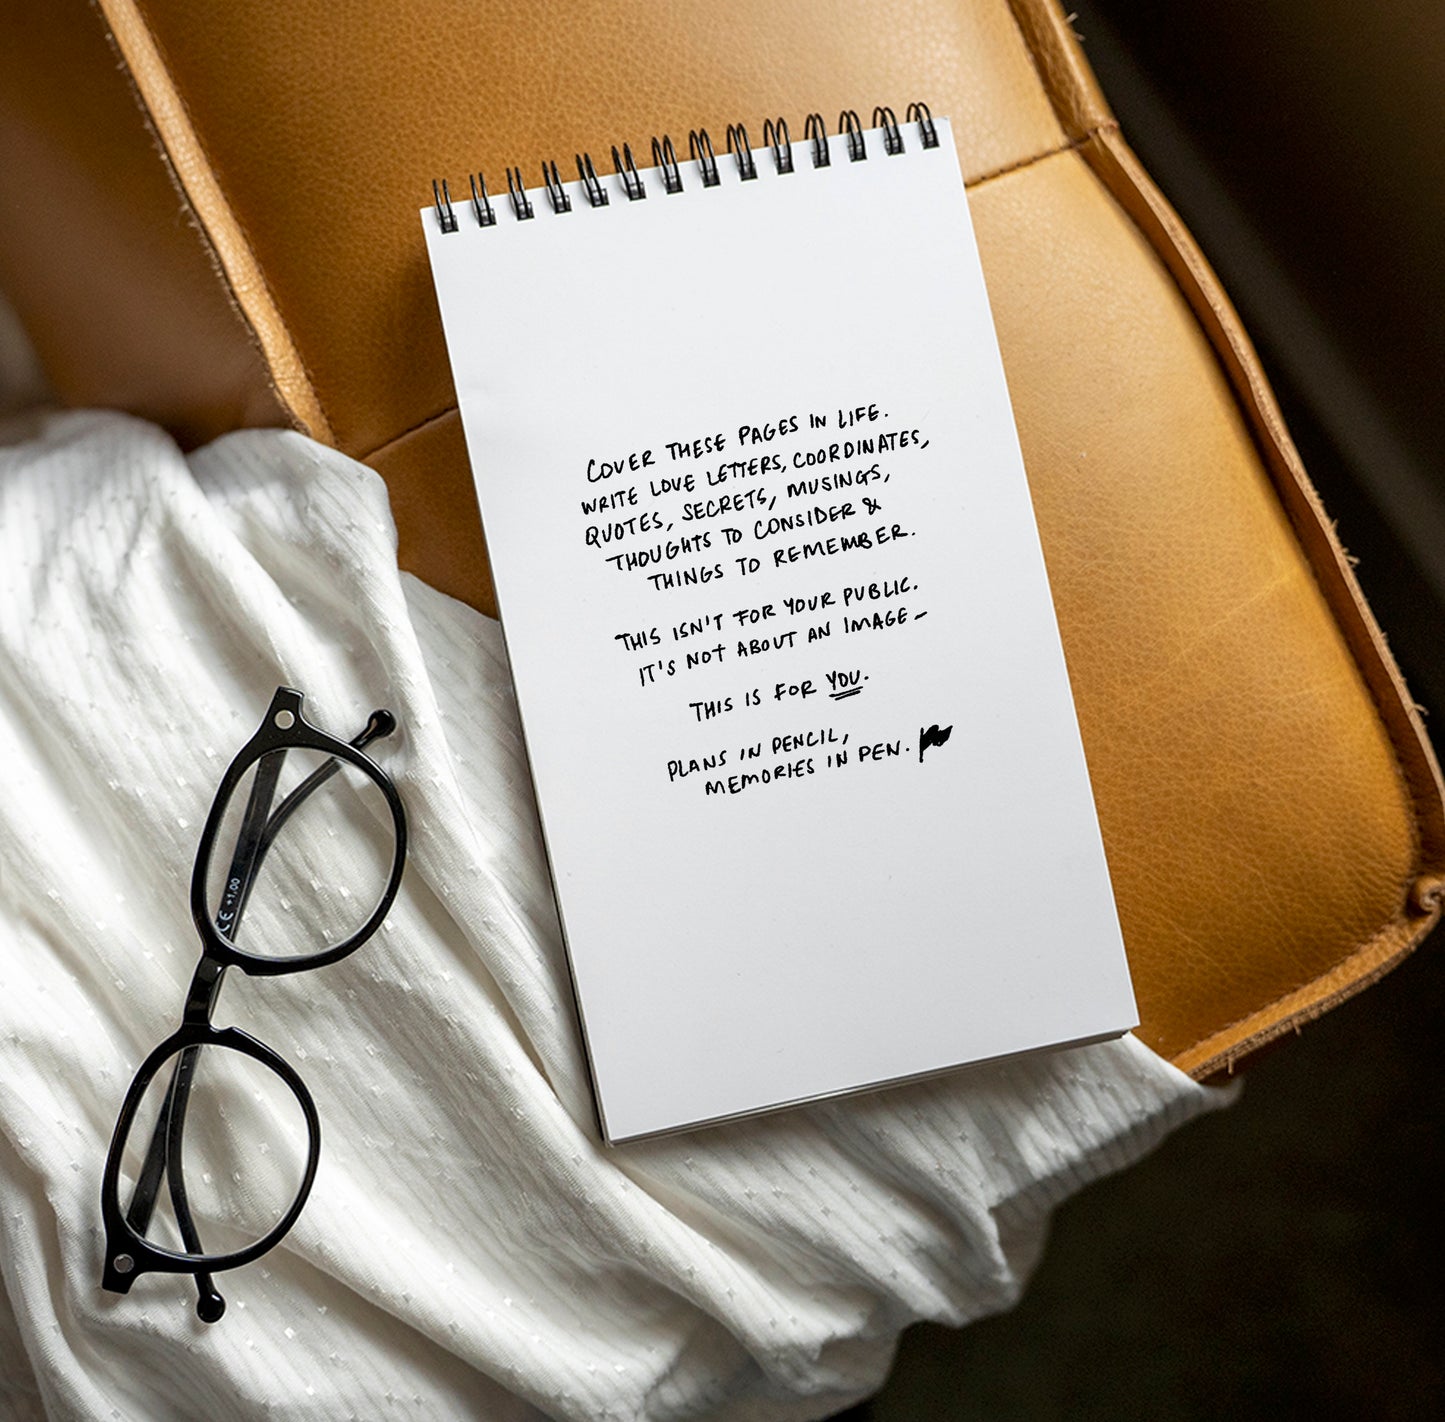 COVER THESE PAGES IN LIFE.
WRITE LOVE LETTERS, COORDINATES,
QUOTES, SECRETS, MUSINGS,
THOUGHTS TO CONSIDER &
THINGS TO REMEMBER.
THIS ISN'T FOR YOUR PUBLIC.
IT'S NOT ABOUT AN IMAGE –
THIS IS FOR YOU.
PLANS IN PENCIL,
MEMORIES IN PEN.
CE +1.00